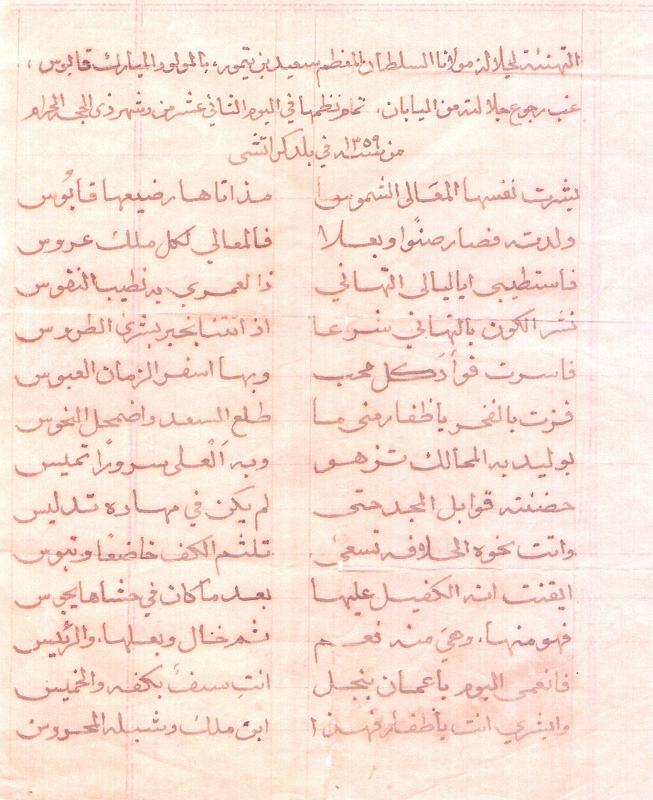 التهنئة لجلالة مولانا السلطان المعظم سعيد بن تيمور، بالمولود المبارك قابوس،
غب رجوع جلالته من اليابان. تمام نظمها في اليوم الثاني عشر من شهر ذي الحجة الحرام
من سنة ١٣٥٩ في بلد كراتشي
بشرت نفسها المعالي الشموسا مذ اتاها رضيعها قابُوس
ولدته فصار صنوًا وبعلا فالمعالي لكل ملك عروس
فاستطيبي اياليالي التهاني ذا لعمري به تطيب النفوس
نشر الكون بالتهاني شرعا اذ اتتنا بخبر بشرى الطروس
فاسرت فوأدَ كل محب وبها اسفر الزمان العبوس
فزت بالفخر ياظفار منى ما طلع السعد واضمحل النحوس
بوليد به الممالك تزهو وبه العلى سرورًا تميس
حضنته قوابل المجد حتى لم يكن في مهاده تدليس
واتت نحوه الخلافه تسعى تلثم الكف خاضعًا وتبوس
ايقنت انه الكفيل عليها بعد ما كان في حشاها يجوس
فهو منها، وهي منه نعم ثم خال وبعلها. والرئيس
فانعمى اليوم ياعمان بنجل انتِ سيفٌ بكفه والخميس
وابشري انت ياظفار فهذا ابن ملك وشبله المحروس